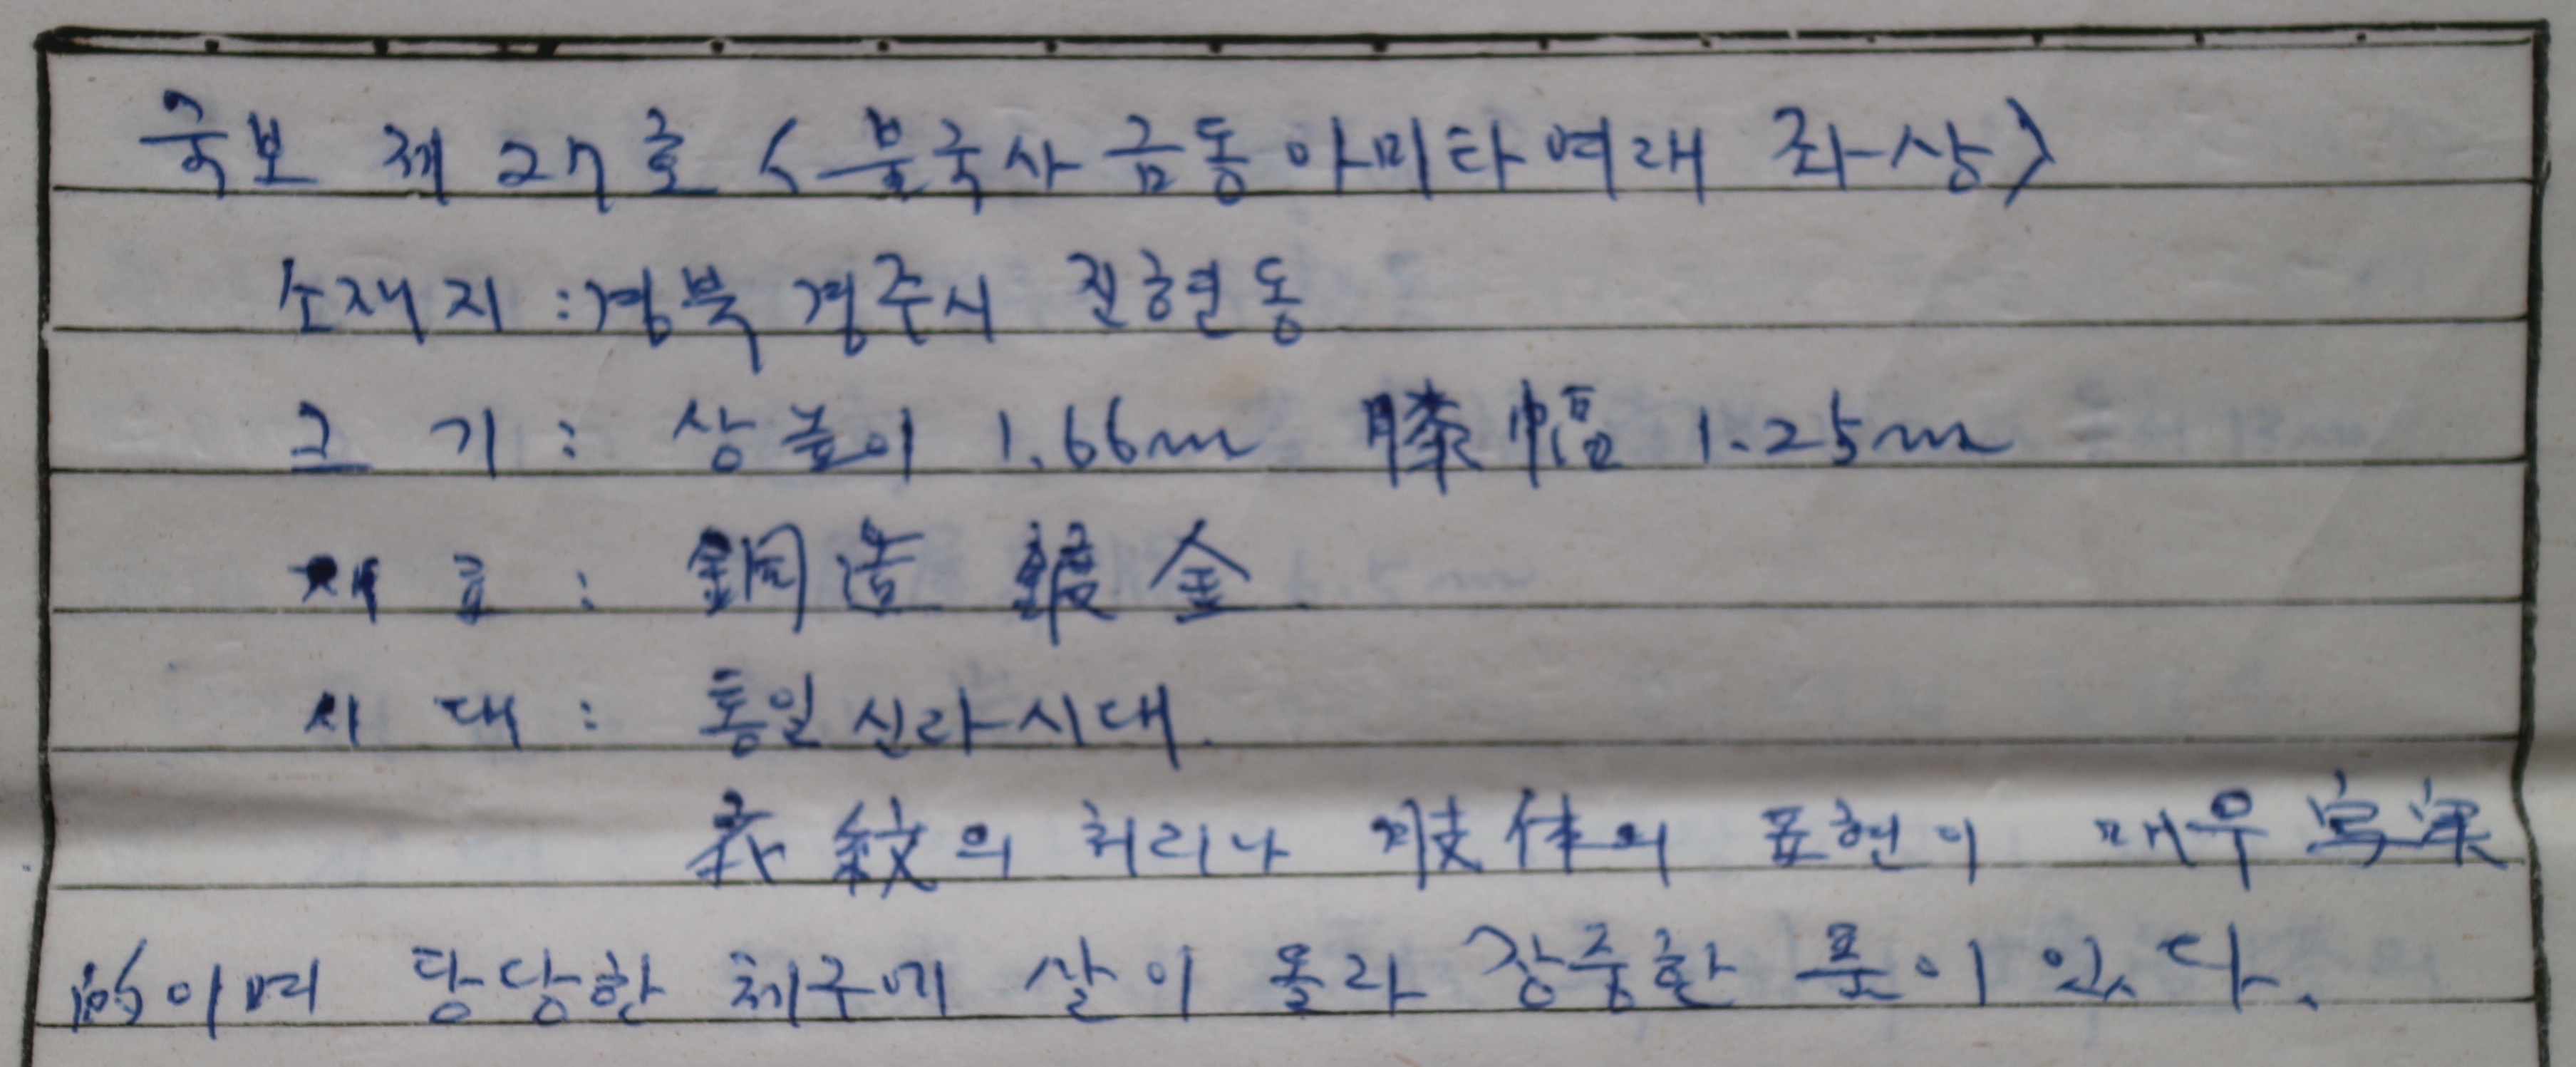 국보 제 27호 <불국사 금동 아미타여래 좌상>
소재지 : 경북 경주시 진현동
크 기 : 상높이 1.66m 膝幅 1.25m
재 료 : 銅造 鍍金.
시 대 : 통일신라시대.
衣紋의 처리나 肢体의 표현이 매우 写実
的이며 당당한 체구에 살이 올라 장중한 품이 있다.